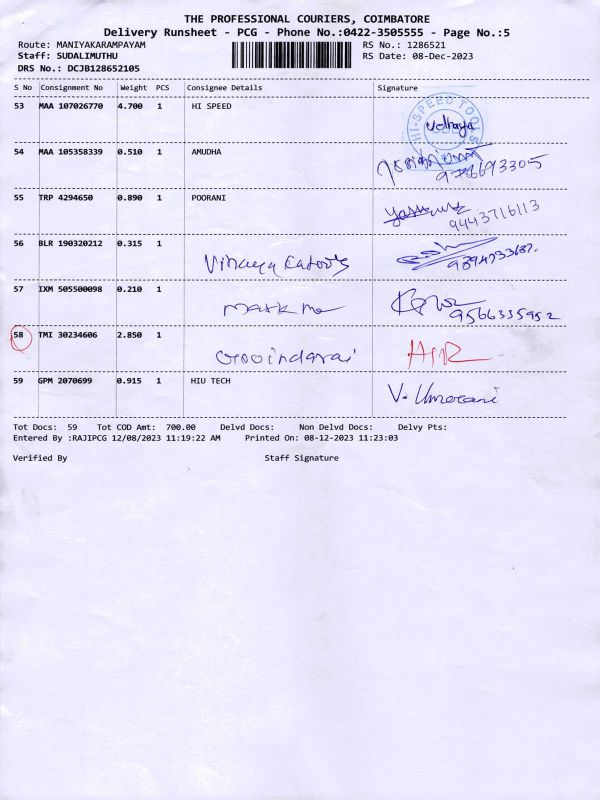 THE PROFESSIONAL COURIERS, COIMBATORE
Delivery Runsheet - PCG - Phone No.:0422-3505555 - Page No.:5
Route: MANIYAKARAMPAYAM RS No.: 1286521
Staff: SUDALIMUTHU RS Date: 08-Dec-2023
DRS No.: DCJB128652105
S No Consignment No Weight PCS Consignee Details Signature
53 MAA 107026770 4.700 1 HI SPEED
HI-SPEED TOOLS
54 MAA 105358339 0.510 1 AMUDHA
55 TRP 4294650 0.890 1 POORANI
9443716113
56 BLR 190320212 0.315 1
57 IXM 505500098 0.210 1
9566335952
58 TMI 30234606 2.850 1
Govindarai
59 GPM 2070699 0.915 1 HIU TECH
Tot Docs: 59 Tot COD Amt: 700.00 Delvd Docs: Non Delvd Docs: Delvy Pts:
Entered By :RAJIPCG 12/08/2023 11:19:22 AM Printed On: 08-12-2023 11:23:03
Verified By Staff Signature